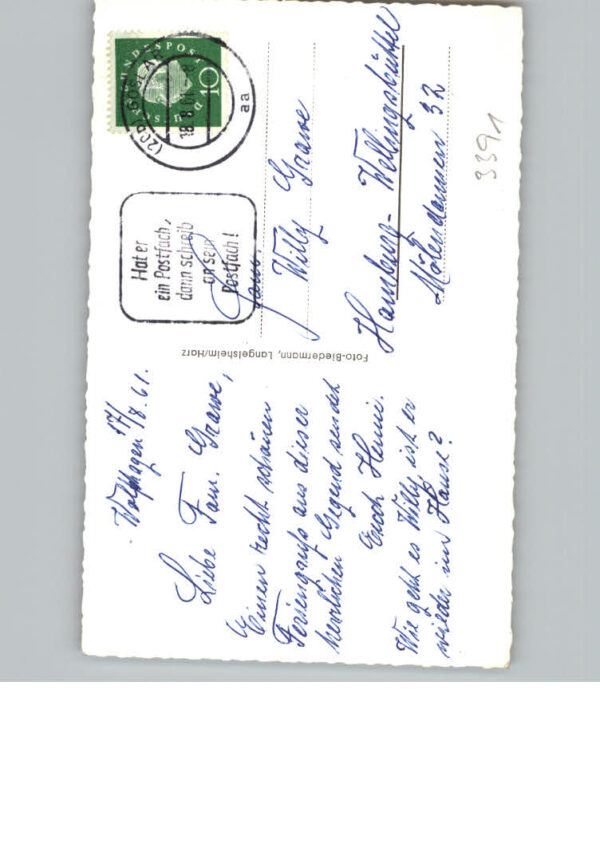 Wolfshagen 17/8.61.
Liebe Fam. Grawe,
Einen recht schönen
Feriengruß aus dieser
herrlichen Gegend sendet
Euch Henni.
Wie geht es Willy ist er
wieder im Hause?
Foto-Biedermann, Langelsheim/Harz
DEUTSCHE BUNDESPOST
10
(20b) GOSLAR
18.8.61-8
aa
Hat er
ein Postfach,
dann schreib
an sein
Postfach!
Fam.
Willy Grawe
Hamburg-Wellingsbüttel
32
3391